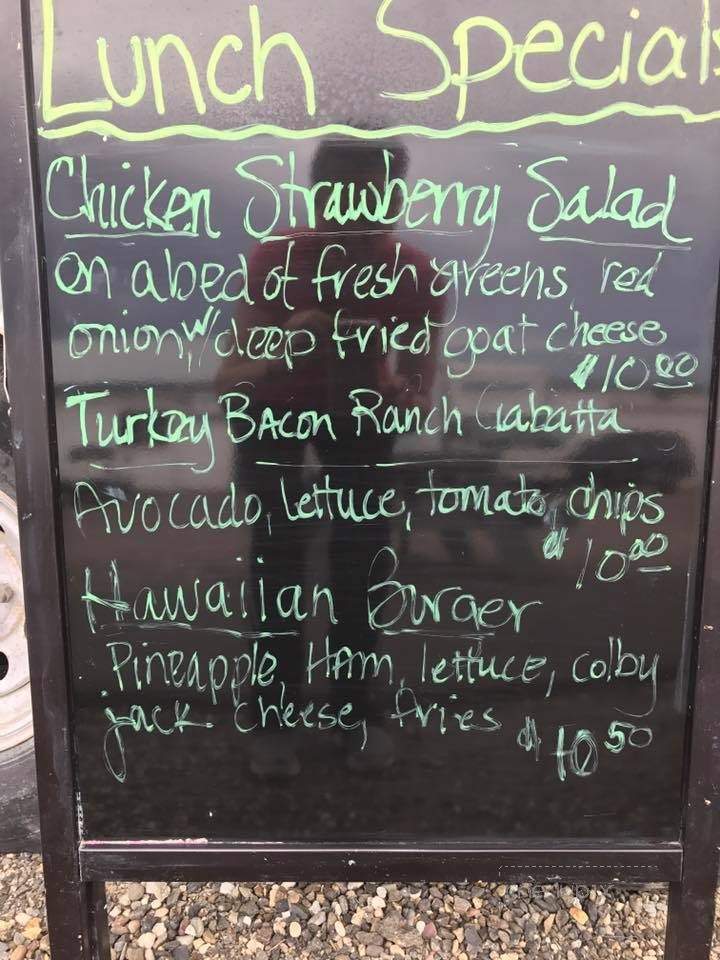 Lunch Specials
Chicken Strawberry Salad
on a bed of fresh greens, red
onion, w/ deep fried goat cheese
$10.00
Turkey Bacon Ranch Ciabatta
Avocado, lettuce, tomato, chips
$10.00
Hawaiian Burger
Pineapple, Ham, lettuce, colby
jack cheese, fries $10.50